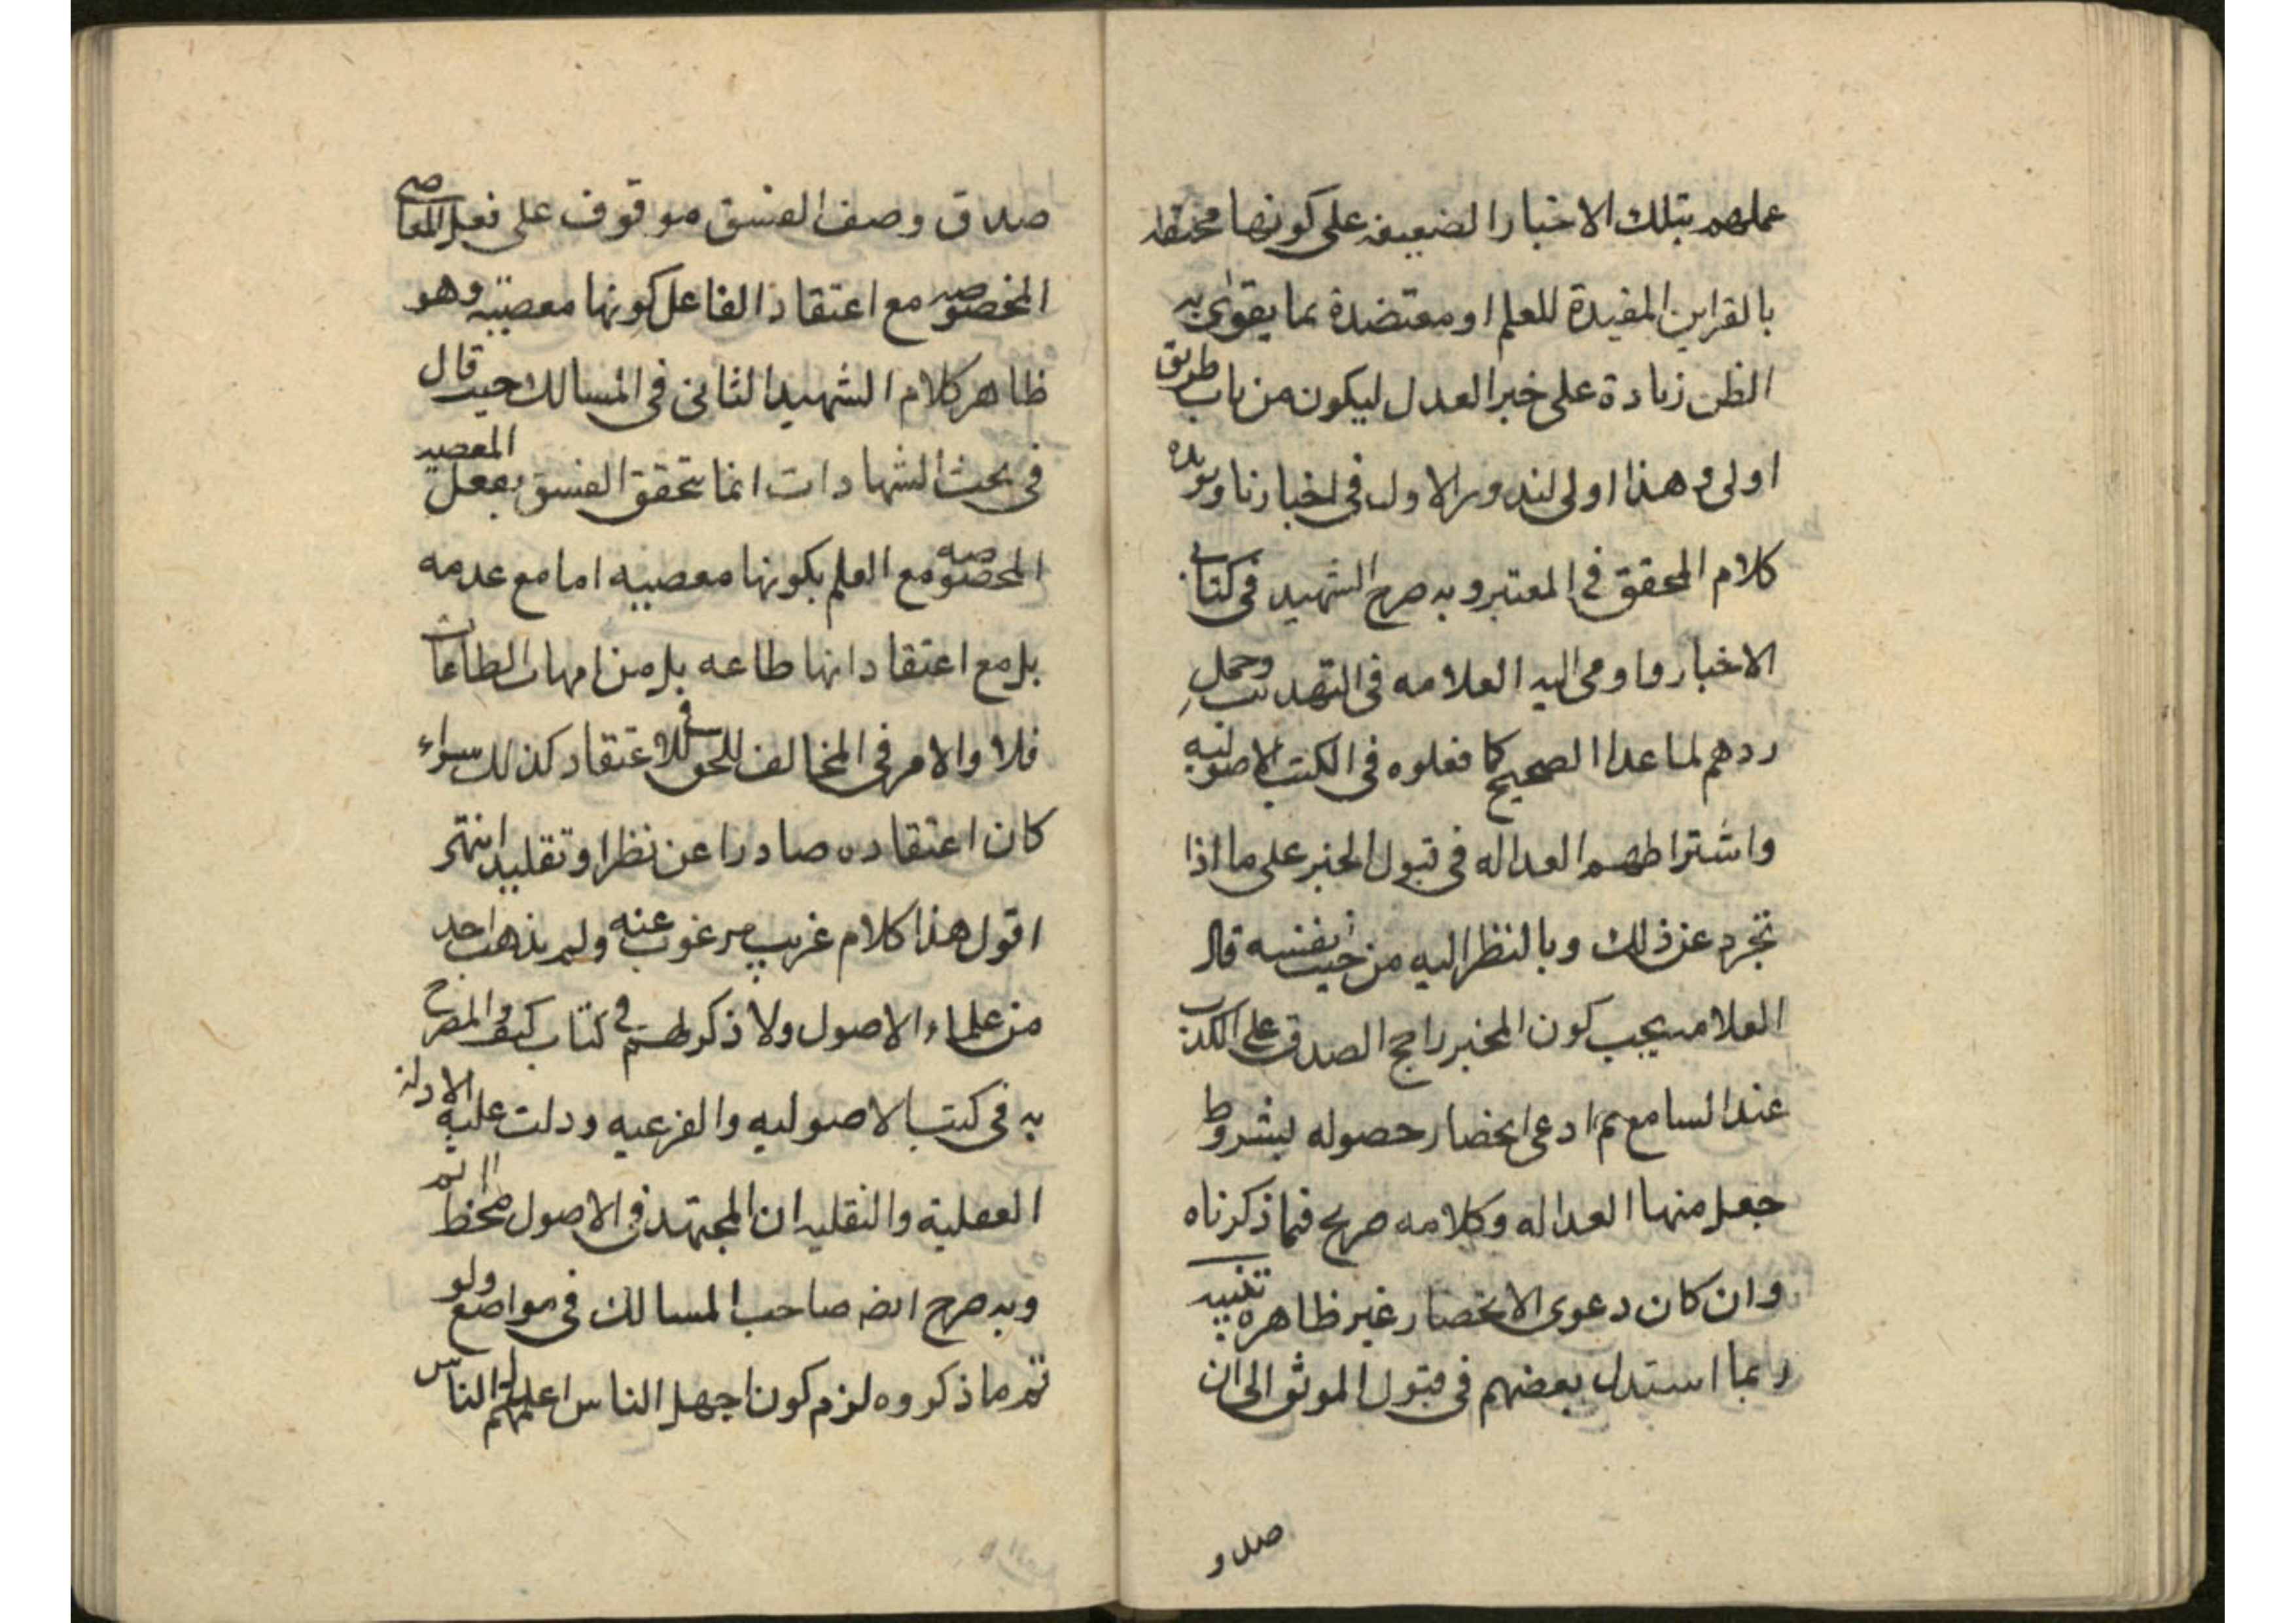 عملهم بتلك الاخبار الضعيفه على كونها محتفه
بالقراين المفيدة للعلم او معتضدة بما يقوى به
الظن زيادة على خبر العدل ليكون من باب طريق
اولى و هذا اولى لندور الاول فى اخبارنا ويويده
كلام المحقق فى المعتبر وبه صرح الشهيد فى كتابى
الاخبار واومى اليه العلامه فى التهذيب وحمل
ردهم لما عدا الصحيح كما فعلوه فى الكتب الاصوليه
واشتراطهم العداله فى قبول الخبر على ما اذا
تجرد عن ذلك وبالنظر اليه من حيث نفسه قال
العلامه يجب كون المخبر راجح الصدق على الكذب
عند السامع ثم ادعى انحصار حصوله بشروط
جعل منها العداله وكلامه صريح فيما ذكرناه
وان كان دعوى الانحصار غير ظاهره تنبيه
ربما استدل بعضهم فى قبول الموثق الى ان
صدق
صدق وصف الفسق موقوف على فعل المعاصى
المخصوصه مع اعتقاد الفاعل كونها معصيته وهو
ظاهر كلام الشهيد الثانى فى المسالك حيث قال
فى بحث الشهادات انما يتحقق الفسق بفعل المعصيه
المخصوصه مع العلم بكونها معصيه اما مع عدمه
بل مع اعتقاد انها طاعه بل من امهات الطاعات
فلا والامر فى المخالف للحق فى الاعتقاد كذلك سواء
كان اعتقاده صادرا عن نظر او تقليد انتهى
اقول هذا كلام غريب مرغوب عنه ولم يذهب احد
من علماء الاصول ولا ذكر لهم فى كتاب كيف و المصرح
به فى كتب الاصوليه والفرعيه ودلت عليه الادله
العقلية والنقليه ان المجتهد فى الاصول مخط اثم
وبه صرح ايضه صاحب المسالك فى مواضع ولو
تم ما ذكروه لزم كون اجهل الناس اعلمهم الناس